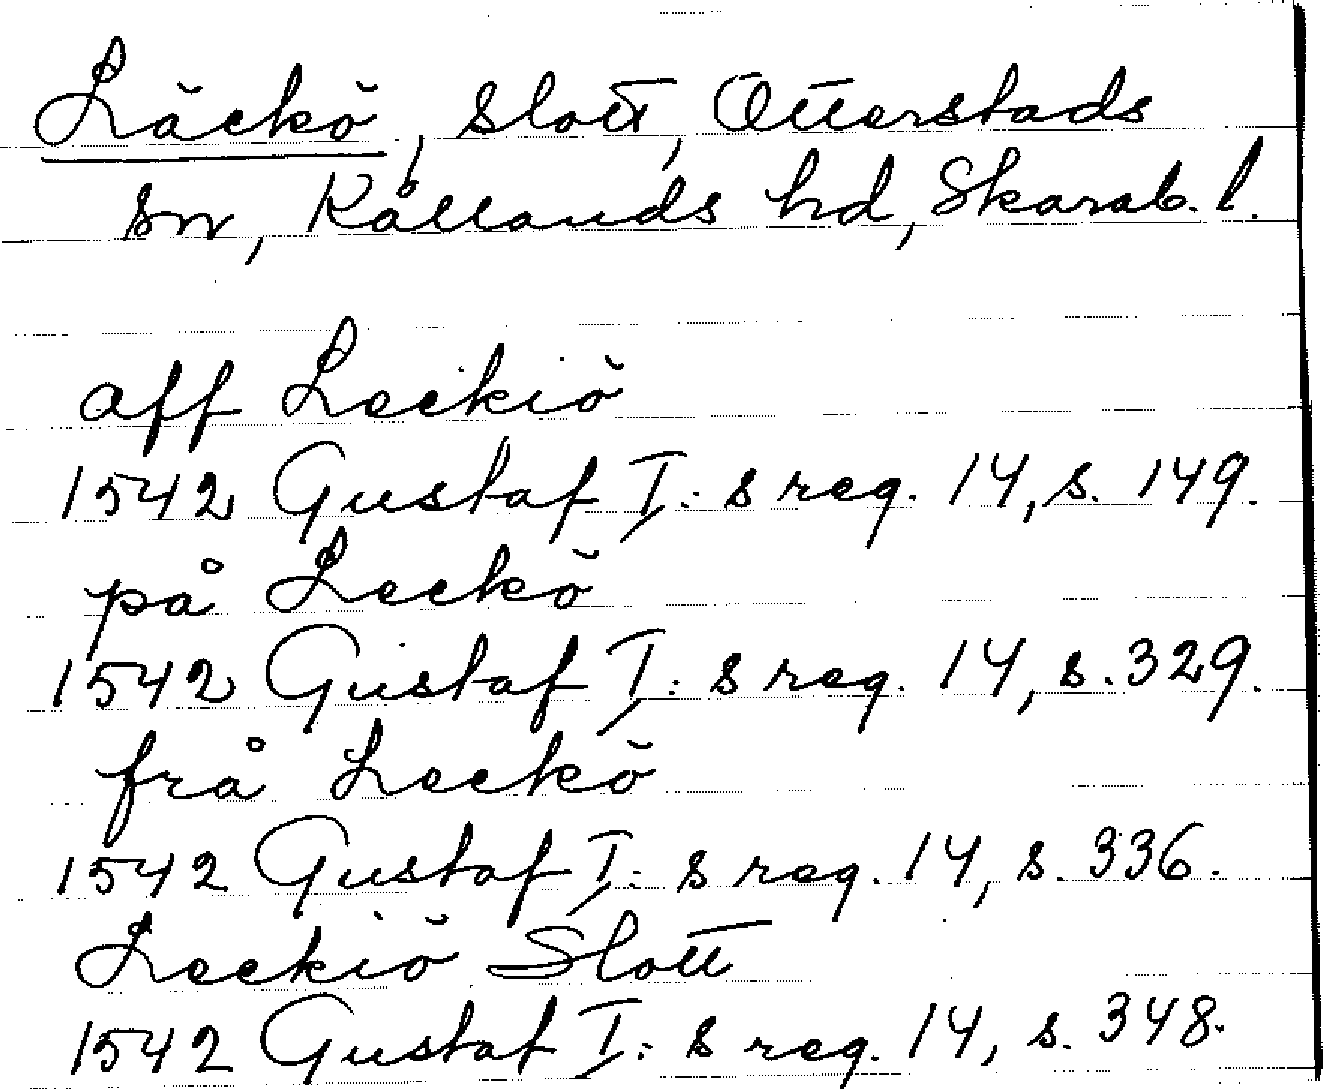 Läckö, slott, Otterstads
sn, Kållands hd, Skarab. l.
aff Leckiö
1542 Gustaf I:s reg. 14, s. 149.
på Leckö
1542 Gustaf I:s reg. 14, s. 329.
frå Leckö
1542 Gustaf I:s reg. 14, s. 336.
Leckiö Slott
1542 Gustaf I:s reg. 14, s. 348.